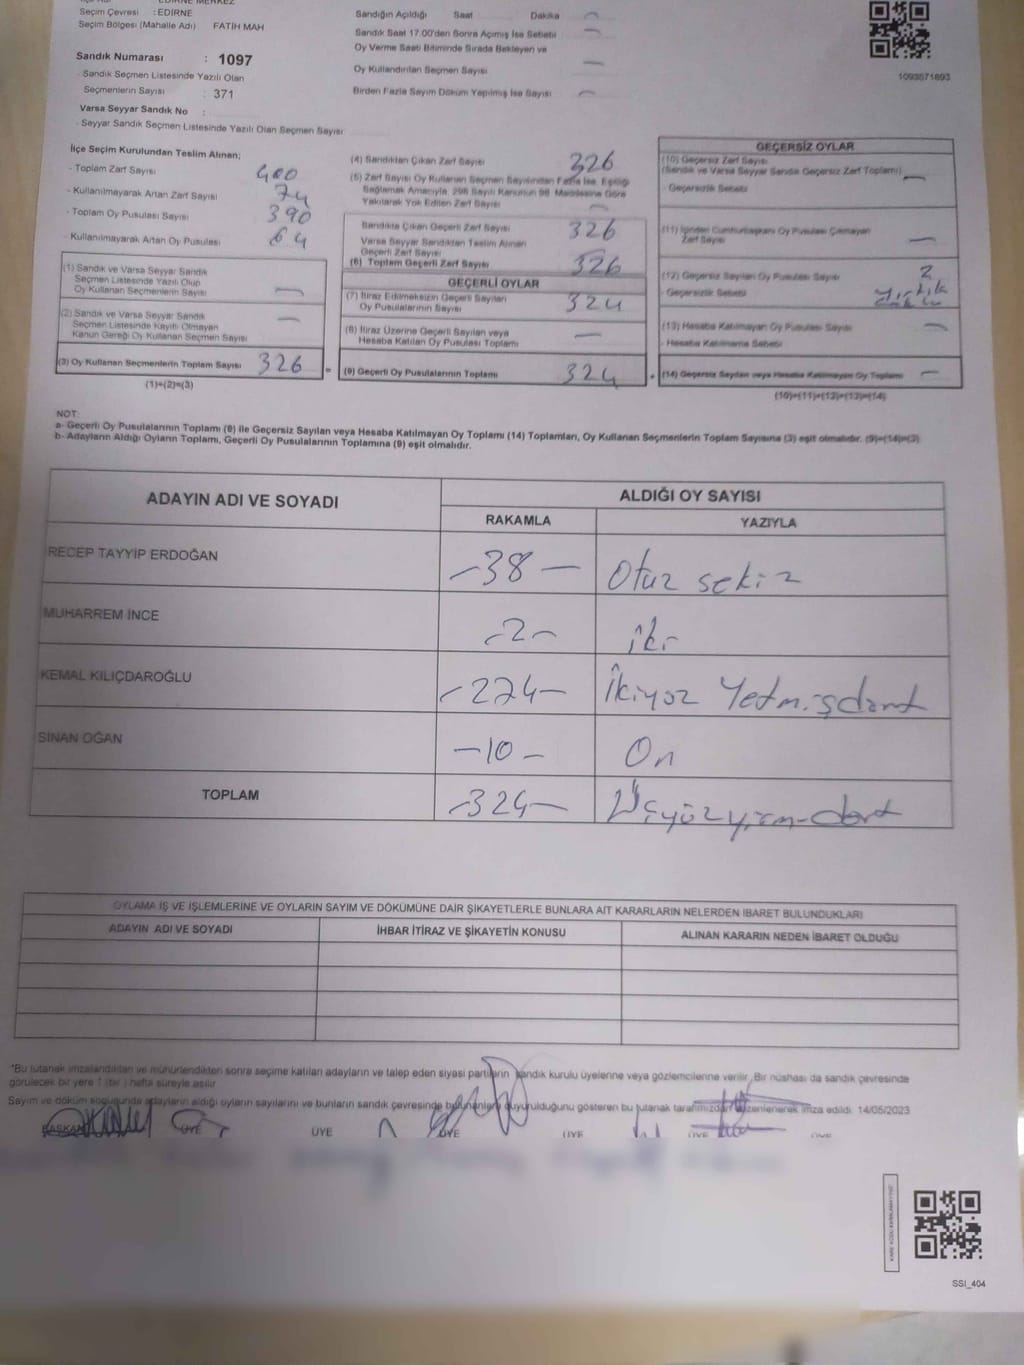 EDİRNE MERKEZ
Seçim Çevresi : EDİRNE
Seçim Bölgesi (Mahalle Adı) FATİH MAH
Sandık Numarası : 1097
- Sandık Seçmen Listesinde Yazılı Olan
Seçmenlerin Sayısı : 371
Varsa Seyyar Sandık No :
- Seyyar Sandık Seçmen Listesinde Yazılı Olan Seçmen Sayısı
Sandığın Açıldığı Saat Dakika
Sandık Saat 17.00'den Sonra Açımış İse Sebebi
Oy Verme Saati Bitiminde Sırada Bekleyen ve
Oy Kullandırılan Seçmen Sayısı
Birden Fazla Sayım Döküm Yapılmış İse Sayısı
1093671893
İlçe Seçim Kurulundan Teslim Alınan;
- Toplam Zarf Sayısı 400
- Kullanılmayarak Artan Zarf Sayısı 74
- Toplam Oy Pusulası Sayısı 390
- Kullanılmayarak Artan Oy Pusulası 64
(1) Sandık ve Varsa Seyyar Sandık
Seçmen Listesinde Yazılı Olup
Oy Kullanan Seçmenlerin Sayısı
(2) Sandık ve Varsa Seyyar Sandık
Seçmen Listesinde Kayıtlı Olmayan
Kanun Gereği Oy Kullanan Seçmen Sayısı
(3) Oy Kullanan Seçmenlerin Toplam Sayısı 326
(1)+(2)=(3)
(4) Sandıktan Çıkan Zarf Sayısı 326
(5) Zarf Sayısı Oy Kullanan Seçmen Sayısından Fazla İse, Eşitliği
Sağlamak Amacıyla, 298 Sayılı Kanunun 98. Maddesine Göre
Yakılarak Yok Edilen Zarf Sayısı
Sandıkta Çıkan Geçerli Zarf Sayısı 326
Varsa Seyyar Sandıktan Teslim Alınan
Geçerli Zarf Sayısı
(6) Toplam Geçerli Zarf Sayısı 326
GEÇERLİ OYLAR
(7) İtiraz Edilmeksizin Geçerli Sayılan
Oy Pusulalarının Sayısı 324
(8) İtiraz Üzerine Geçerli Sayılan veya
Hesaba Katılan Oy Pusulası Toplamı
(9) Geçerli Oy Pusulalarının Toplamı 324
GEÇERSİZ OYLAR
(10) Geçersiz Zarf Sayısı
(Sandık ve Varsa Seyyar Sandık Geçersiz Zarf Toplamı)
- Geçersizlik Sebebi
(11) İçinden Cumhurbaşkanı Oy Pusulası Çıkmayan
Zarf Sayısı
(12) Geçersiz Sayılan Oy Pusulası Sayısı 2
- Geçersizlik Sebebi
(13) Hesaba Katılmayan Oy Pusulası Sayısı
- Hesaba Katılmama Sebebi
(14) Geçersiz Sayılan veya Hesaba Katılmayan Oy Toplamı
(10)+(11)+(12)+(13)=(14)
NOT:
a- Geçerli Oy Pusulalarının Toplamı (9) ile Geçersiz Sayılan veya Hesaba Katılmayan Oy Toplamı (14) Toplamları, Oy Kullanan Seçmenlerin Toplam Sayısına (3) eşit olmalıdır. (9)+(14)=(3)
b- Adayların Aldığı Oyların Toplamı, Geçerli Oy Pusulalarının Toplamına (9) eşit olmalıdır.
ADAYIN ADI VE SOYADI ALDIĞI OY SAYISI
RAKAMLA YAZIYLA
RECEP TAYYİP ERDOĞAN -38- Otuz sekiz
MUHARREM İNCE -2- iki
KEMAL KILIÇDAROĞLU -274- İkiyüz Yetmişdört
SİNAN OĞAN -10- On
TOPLAM -324- Üçyüzyirmidört
OYLAMA İŞ VE İŞLEMLERİNE VE OYLARIN SAYIM VE DÖKÜMÜNE DAİR ŞİKAYETLERLE BUNLARA AİT KARARLARIN NELERDEN İBARET BULUNDUKLARI
ADAYIN ADI VE SOYADI İHBAR İTİRAZ VE ŞİKAYETİN KONUSU ALINAN KARARIN NEDEN İBARET OLDUĞU
*Bu tutanak imzalandıktan ve mühürlendikten sonra seçime katılan adayların ve talep eden siyasi partilerin sandık kurulu üyelerine veya gözlemcilerine verilir. Bir nüshası da sandık çevresinde
görülecek bir yere 1 (bir) hafta süreyle asılır.
Sayım ve döküm sonucunda adayların aldığı oyların sayılarını ve bunların sandık çevresinde bulunanlara duyurulduğunu gösteren bu tutanak tarafımızdan düzenlenerek imza edildi. 14/05/2023
BAŞKAN ÜYE ÜYE ÜYE ÜYE ÜYE ÜYE
SSI_404